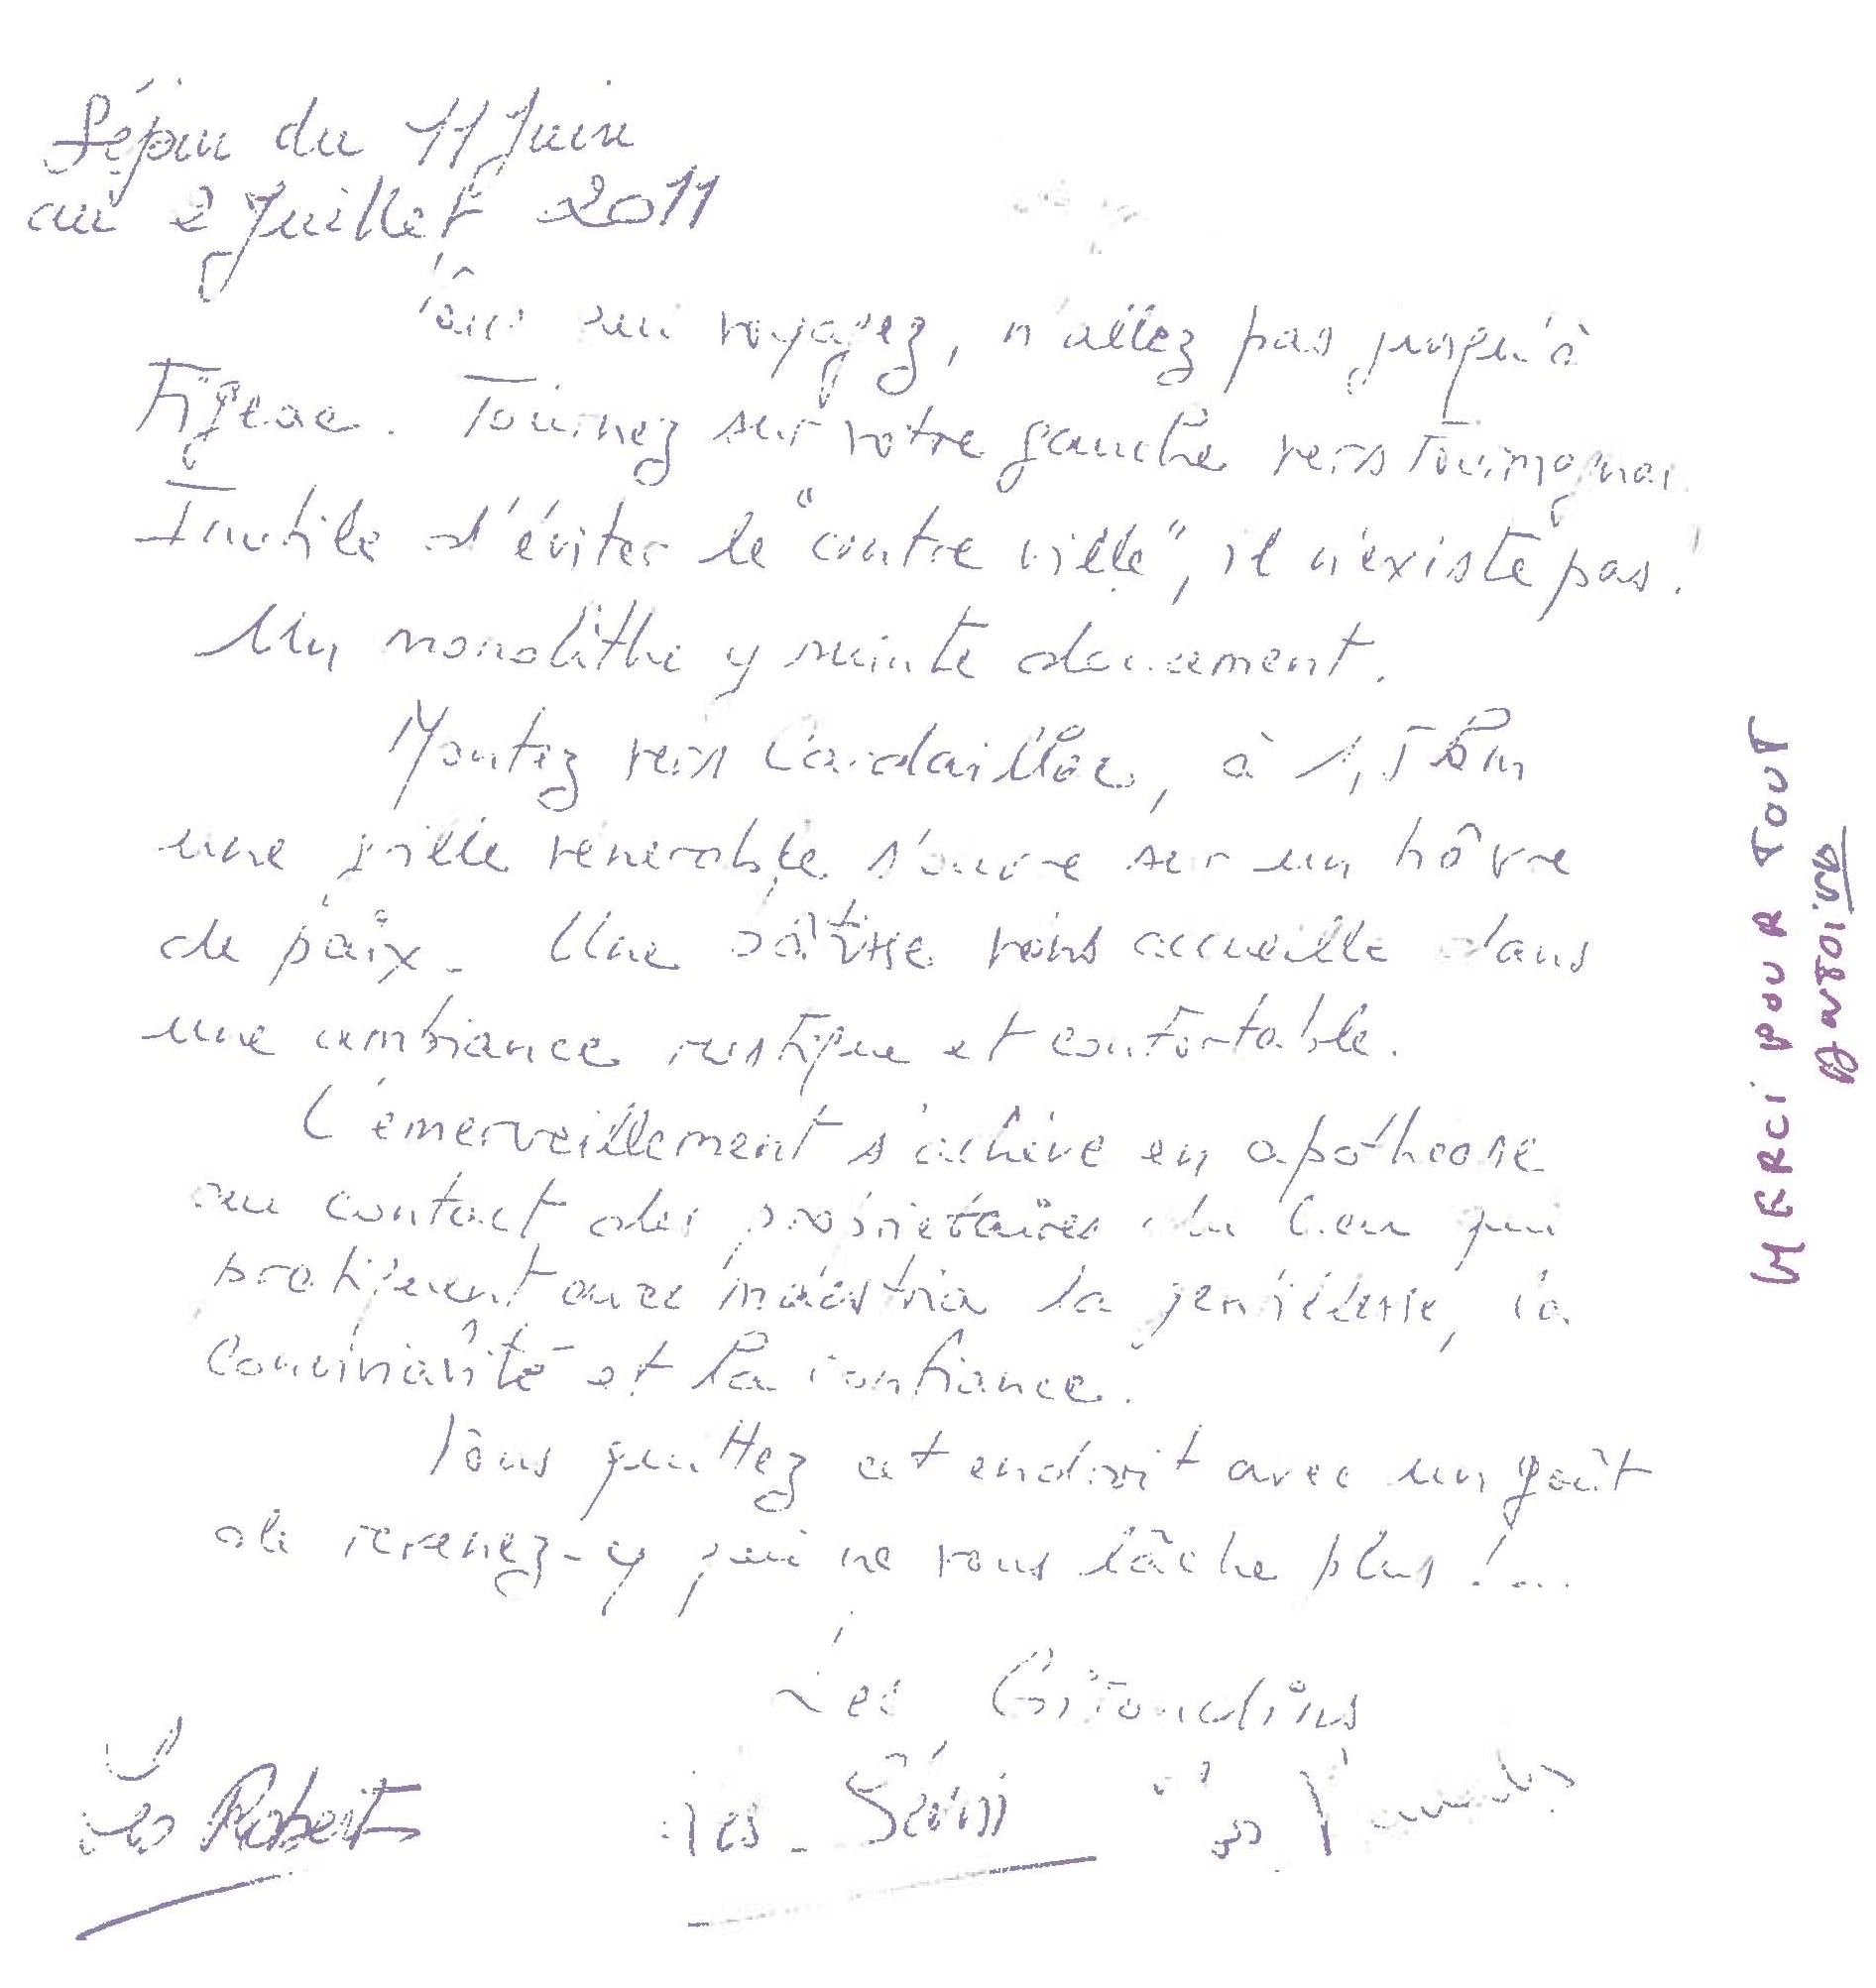 Séjour du 11 Juin
au 2 Juillet 2011
Vous qui voyagez, n'allez pas jusqu'à
Figeac. Tournez sur votre gauche vers
Inutile d'éviter le "centre ville", il n'existe pas!
Un monolithe y suinte doucement.
Montez vers Cardaillac, à 1,5 km
une grille vénérable s'ouvre sur un hâvre
de paix. Une bâtisse vous accueille dans
une ambiance rustique et confortable.
L'émerveillement s'achève en apothéose
au contact des propriétaires du lieu qui
pratiquent avec maestria la gentillesse, la
convivialité et la confiance.
Vous quittez cet endroit avec un goût
de revenez-y qui ne vous lâche plus!...
Les
Les Robert
Les
MERCI POUR TOUT